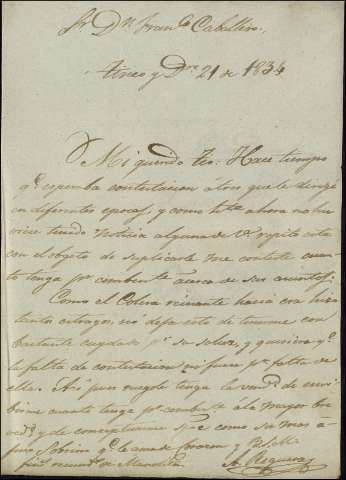 Sr Dn Franco Caballero.
Tineo y Dre 21 de 1834
Mi querido Tio: Hace tiempo
qe esperaba contestacion á los que le dirigí
en diferentes epocas, y como hasta ahora no hu
viese tenido Noticia alguna de V. repito esta
con el obgeto de suplicarle me conteste cuan
to tenga pr combente acerca de sus
Como el Colera reinante hacia esa hizo
tantos estragos, no deja esto de tenerme con
bastante cuydado pr su salud, y quisiera qe
la falta de contestacion no fuera pr falta de
ella. Asi pues ruegole tenga la de escri
birme cuanto tenga pr combente á la mayor bre
vedd, y de conceptuarme spre como su mas a
Sobrino qe le ama de corazon y B.S.M.